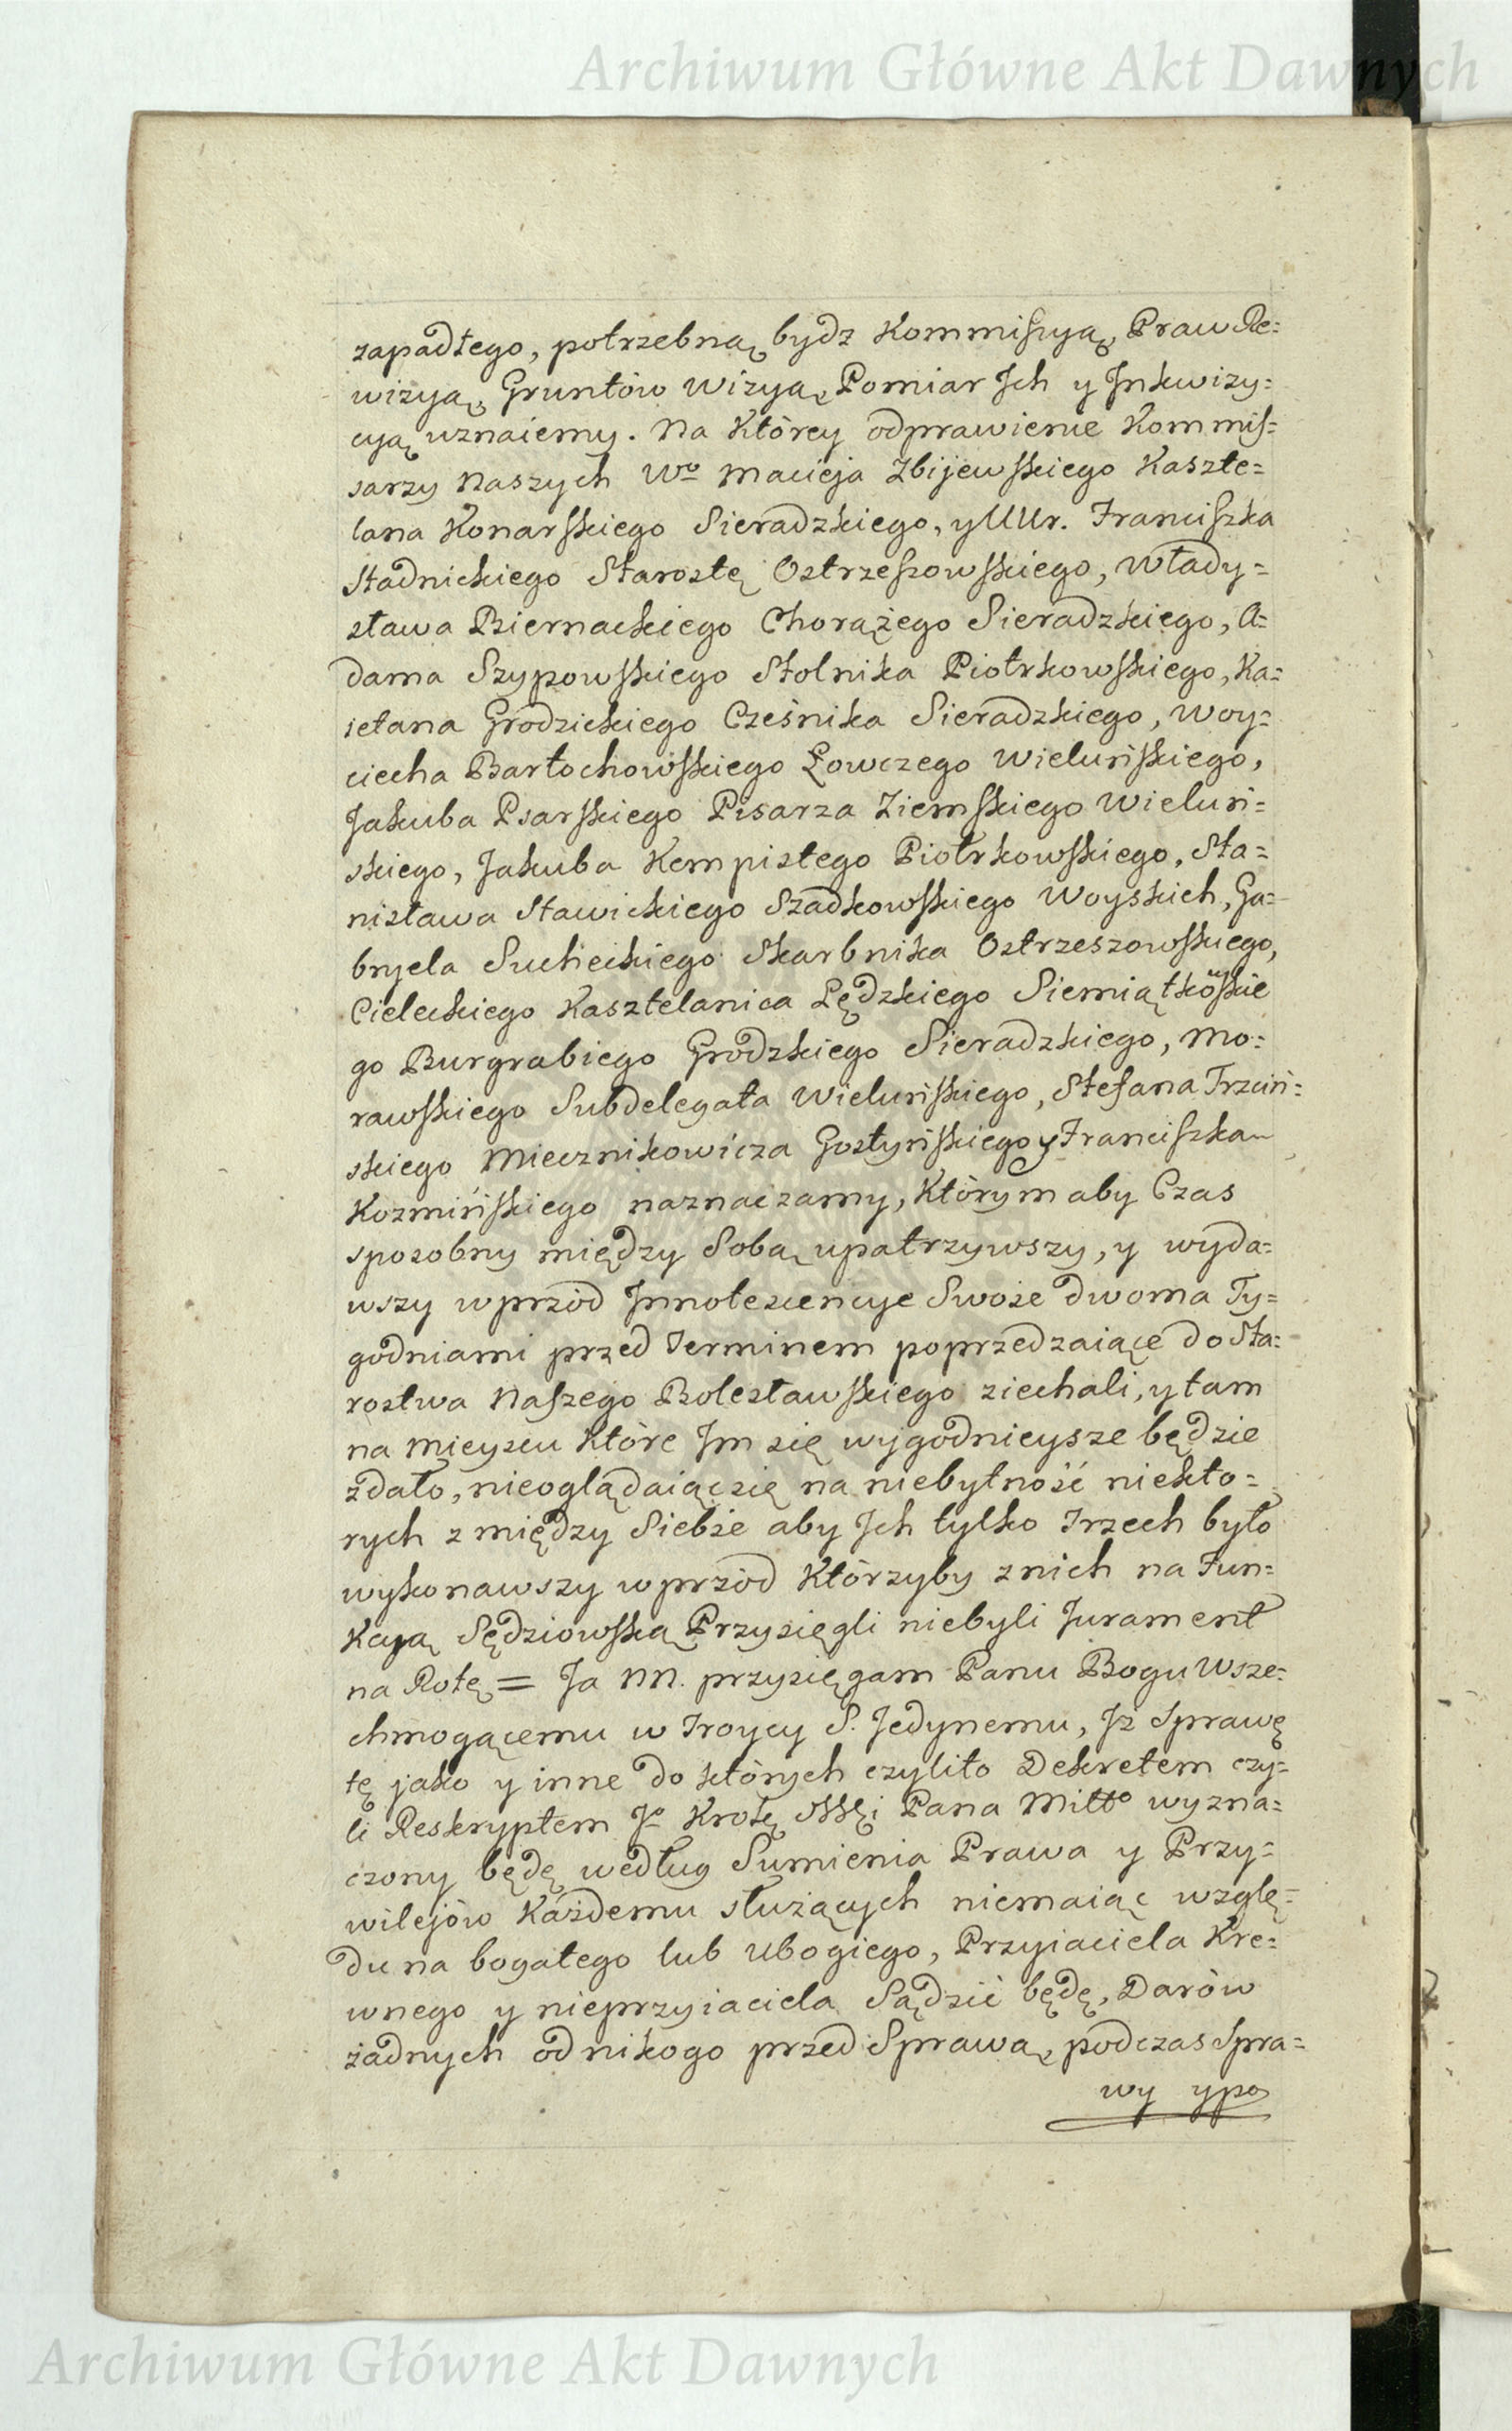 Archiwum Główne Akt Dawnych
zapadłego, potrzebną bydz Kommissyą, Praw Re=
wizyą, Gruntów Wizyą, Pomiar Jch y Jnkwizy=
cyą uznaiemy. Na Którey odprawienie Kommis=
sarzy Naszych Wo Macieja Zbijewskiego Kaszte=
lana Konarskiego Sieradzkiego, y UUr. Franciszka
Stadnickiego Starostę Ostrzeszowskiego, Włady=
sława Biernackiego Chorążego Sieradzkiego, A=
dama Szypowskiego Stolnika Piotrkowskiego, Ka=
ietana Grodzickiego Cześnika Sieradzkiego, Woy=
ciecha Bartochowskiego Łowczego Wieluńskiego,
Jakuba Psarskiego Pisarza Ziemskiego Wieluń=
skiego, Jakuba Kempistego Piotrkowskiego, Sta=
nisława Stawickiego Szadkowskiego Woyskich, Ga=
bryela Sucheckiego Skarbnika Ostrzeszowskiego,
Cieleckiego Kasztelanica Lędzkiego Siemiątkowskie
go Burgrabiego Grodzkiego Sieradzkiego, Mo=
rawskiego Subdelegata Wieluńskiego, Stefana Trzciń=
skiego Miecznikowicza Gostyńskiego y Franciszka
Kozmińskiego naznaczamy, Którym aby Czas
sposobny między Sobą upatrzywszy, y wyda=
wszy wprzód Jnnotescencye Swoie dwoma Ty=
godniami przed Terminem poprzedzaiące do Sta=
rostwa Naszego Bolesławskiego ziechali, y tam
na mieyscu które Jm się wygodnieysze będzie
zdało, nieoglądaiąc się na niebytność niekto=
rych z między Siebie aby Jch tylko Trzech było
wykonawszy wprzód Którzyby z nich na Fun=
kcyą Sędziowską Przysięgli niebyli Jurament
na Rotę = Ja NN. przysięgam Panu Bogu Wsze=
chmogącemu w Troycy S. Jedynemu, Jż Sprawę
tę jako y inne do których czylito Dekretem czy=
li Reskryptem Jo Krolę Mści Pana Miłło wyzna=
czony będę według Sumienia Prawa y Przy=
wilejów Każdemu służących niemaiąc wzglę=
du na bogatego lub Ubogiego, Przyiaciela Kre=
wnego y nieprzyiaciela Sądzić będę, Darów
żadnych od nikogo przed Sprawą, podczas Spra=
wy y po
Archiwum Główne Akt Dawnych